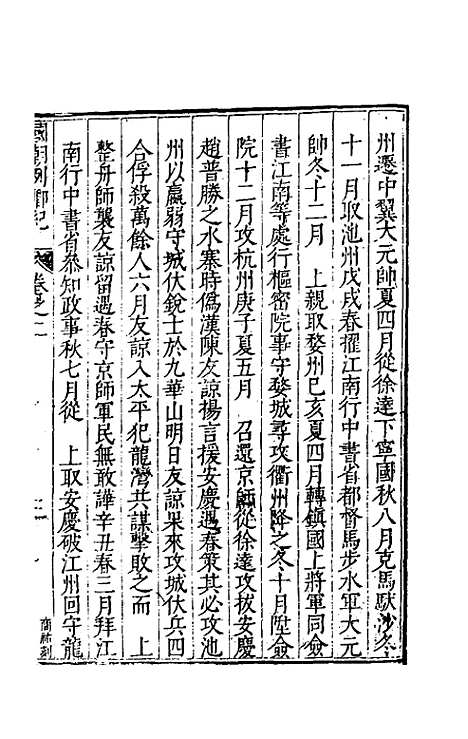 州遷中翼大元帥夏四月從徐達下寧國秋八月克馬馱沙冬
十一月取池州戊戌春擢江南行中書省都督馬步水軍大元
帥冬十二月　上親取婺州己亥夏四月轉鎮國上將軍同僉
書江南等處行樞密院事守婺城尋攻衢州降之冬十月陞僉
院十二月攻杭州庚子夏五月　召還京師從徐達攻拔安慶
趙普勝之水寨時僞漢陳友諒揚言援安慶遇春策其必攻池
州以羸弱守城伏銳士於九華山明日友諒果來攻城伏兵四
合俘殺萬餘人六月友諒入太平犯龍灣共謀擊敗之而　上
整舟師襲友諒留遇春守京師軍民無敢譁辛丑春三月拜江
南行中書省叅知政事秋七月從　上取安慶破江州回守龍
國朝列卿紀
卷之二
商祐刻